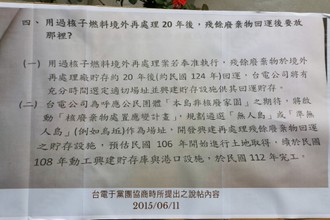 四、用過核子燃料境外再處理 20 年後，殘餘廢棄物回運後要放
那裡？
(一) 用過核子燃料境外再處理案若奉准執行，殘餘廢棄物於境外
再處理廠貯存約 20 年後(約民國 124 年)回運，台電公司將有
充分時間選定適切場址並興建貯存設施供其回運貯存。
(二) 台電公司為呼應公民團體「本島非核家園」之期待，將啟
動「核廢棄物處置應變計畫」，規劃遴選「無人島」或「準無
人島」(例如烏坵)作為場址，開發興建再處理殘餘廢棄物回運
之貯存設施，預估民國 106 年開始進行土地取得，續於民國
108 年動工興建貯存庫與港口設施，於民國 112 年完工。
台電于黨團協商時所提出之說帖內容
2015/06/11